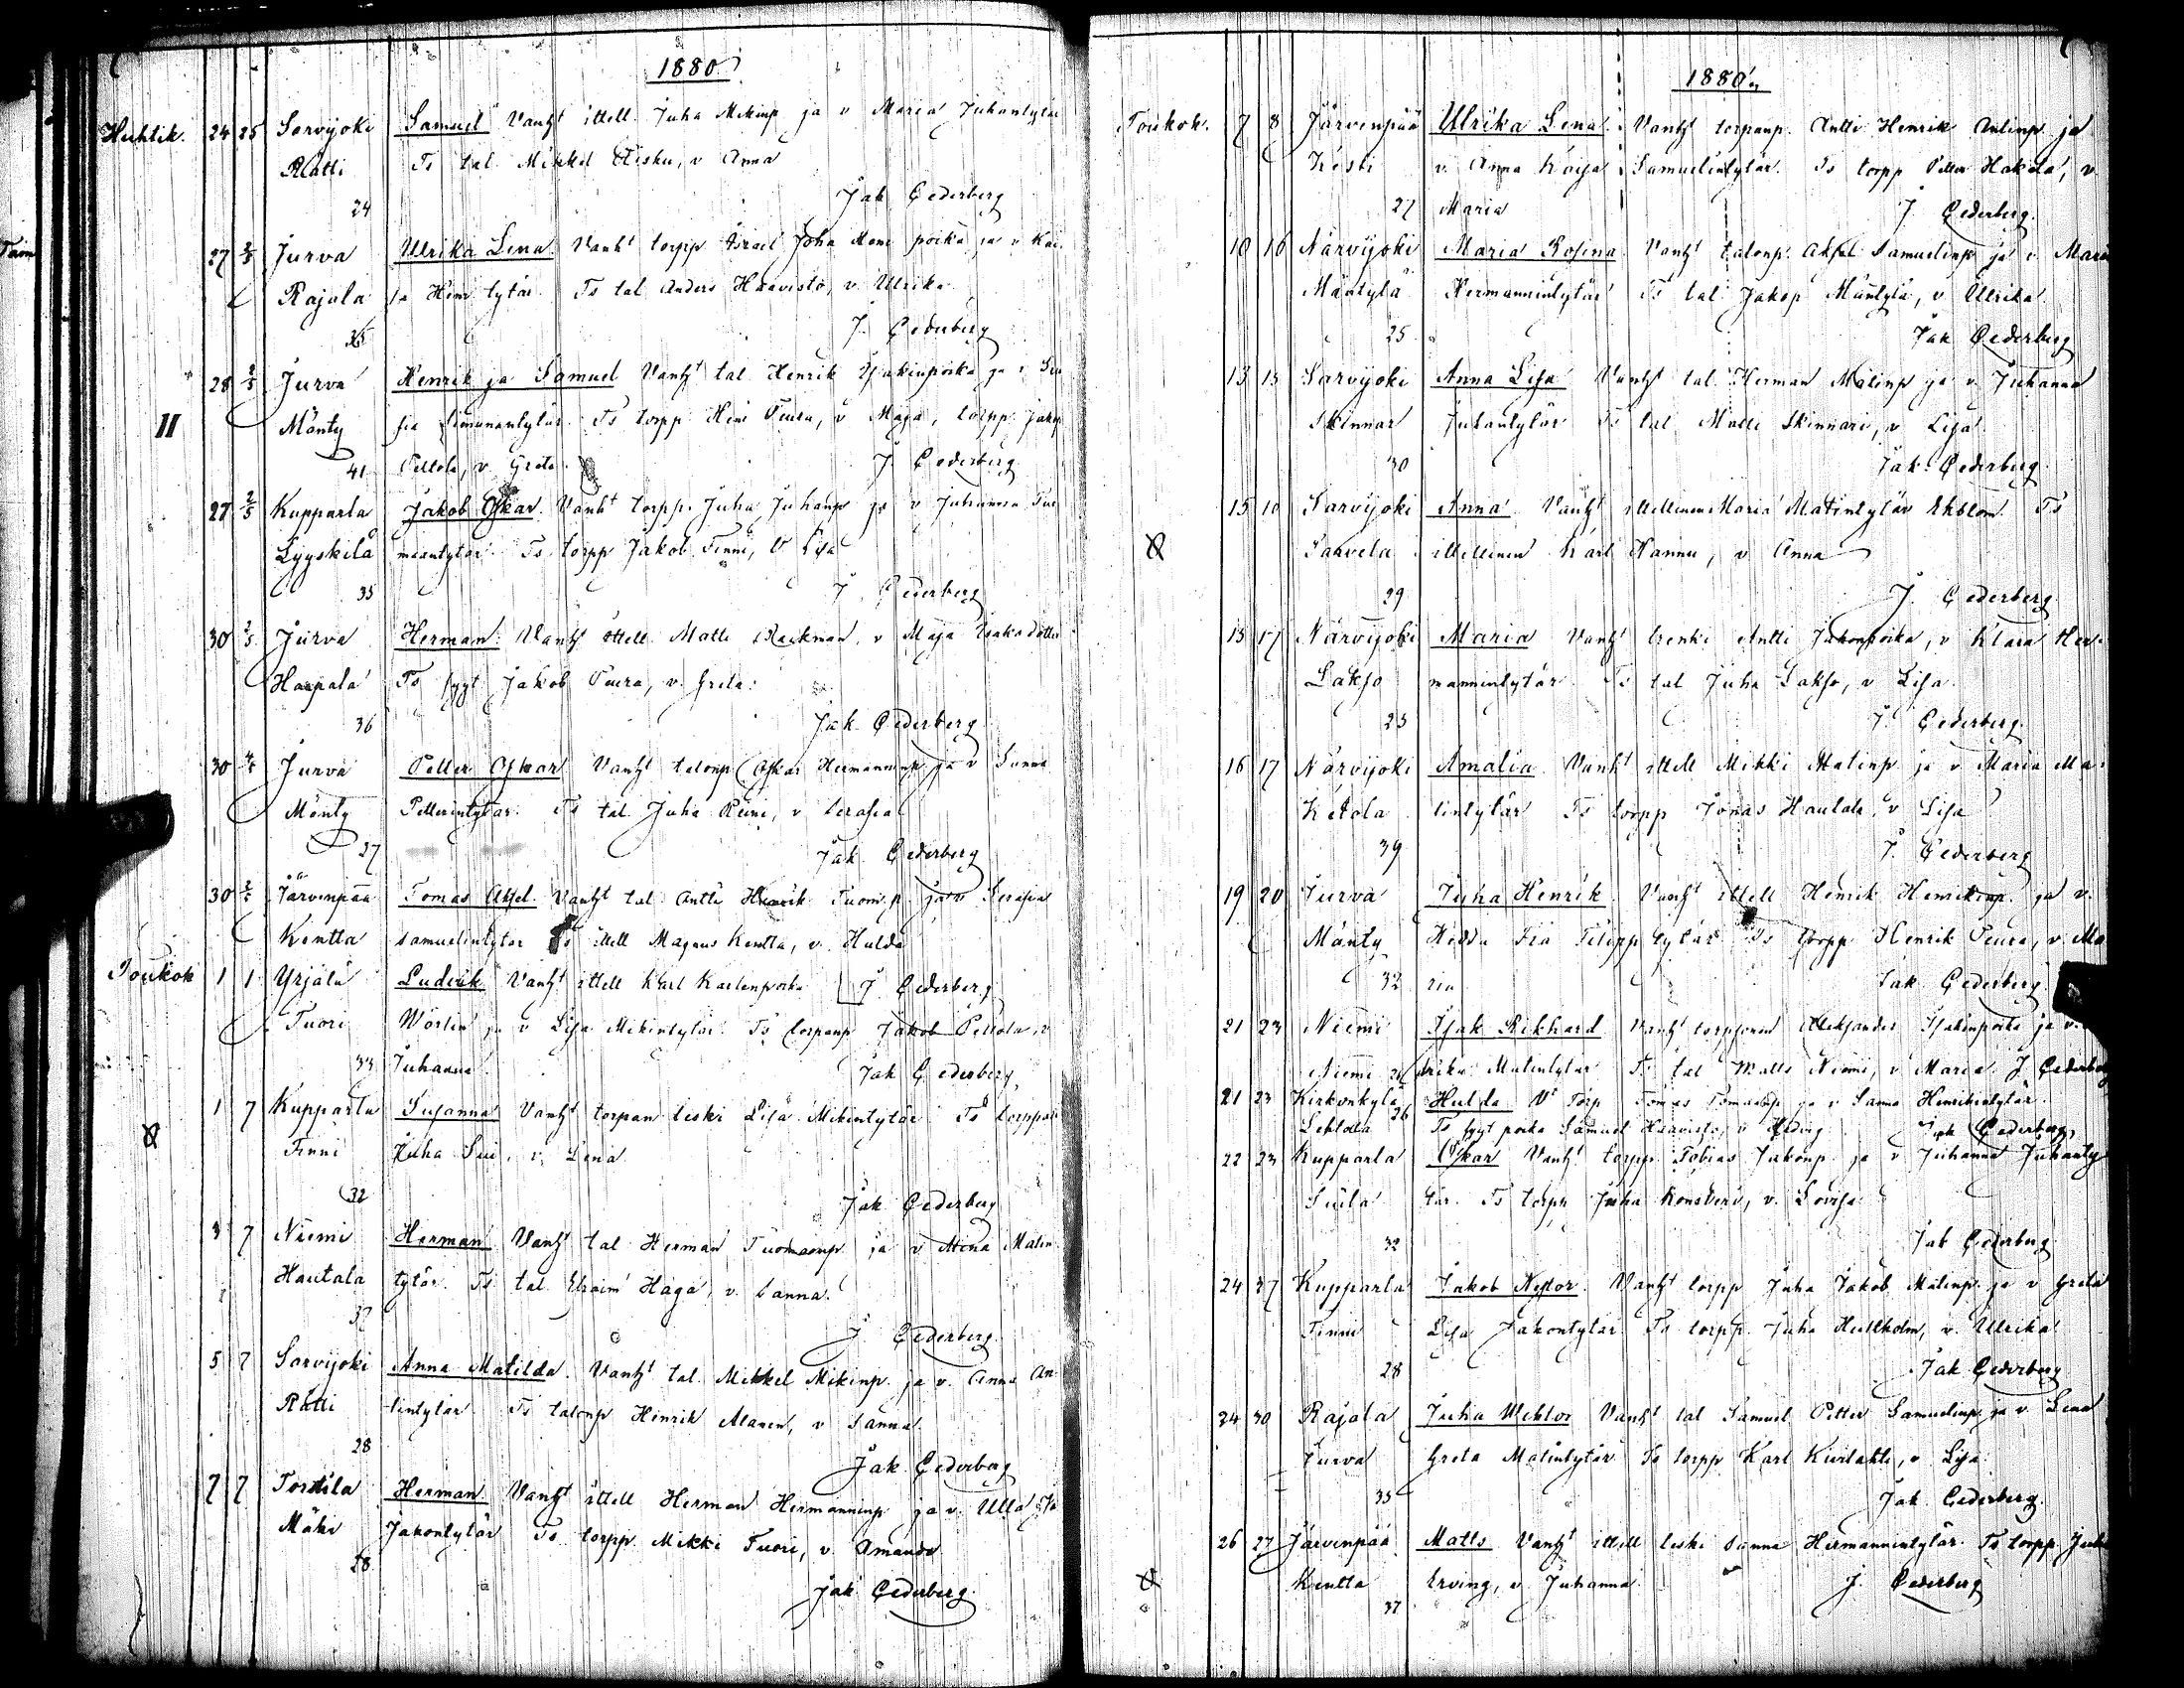 1880
Huhtik. 24 25 Sarvijoki Samuel Vanht ittell. Juha Mikinp ja v Maria Juhantytär
Rätti Ts tal Mikkel Äisku, v Anna
24 Jak Cederberg
27 2/5 Jurva Ulrika Lena Vanht torpp Israel Joha Henr poika ja v Kai
Rajala sa Henr tytär. Ts tal Anders Haavisto, v. Ulrika
35 J. Cederberg
28 2/5 Jurva Henrik ja Samuel Vanht tal Henrik Isakinpoika ja v
II Mänty fia Simonantytär. Ts torpp Henr Peura, v Maja, torpp Jakop
41 Peltola, v. Greta. J. Cederberg
27 2/5 Kupparla Jakob Oskar. Vanht torpp. Juha Juhanp ja v Juhanna Tuo
Lyyskilä maantytär. Ts torpp Jakob Finni, v Lisa
35 J. Cederberg
30 2/5 Jurva Herman. Vanht ittell Matts Backman, v Maja Isaks dotter
Harpala Ts sygt Jakob Peura, v. Greta.
36 Jak Cederberg
30 Jurva Petter Oskar Vanht talonp Oskar Hermanninp ja v Sanna
Mänty Petterintytär. Ts tal. Juha Reini, v Serafia
27 Jak Cederberg
30 2/5 Järvenpää Tomas Aksel. Vanht tal Antti Henrik Tuom.p. ja v Serafia
Kentta Samuelintytär Ts ittell Magnus Kentta, v. Hulda
Toukok 1 1 Yrjälä Ludvik Vanht ittell Karl Kaclenpoika J. Cederberg
Tuori Wörlin ja v Lisa Mikintytär. Ts torpanp Jakob Peltola, v
33 Juhanna Jak Cederberg,
1 7 Kupparla Susanna Vanht torpan leski Lisa Mikintytär Ts torppar
Finni Juha Sui, v. Lena
32 Jak Cederberg
3 7 Niemi Herman Vanht tal Herman Tuomaanp ja v Mina Matin
Hautala tytär. Ts tal. Efraim Haga, v. Sanna.
37 J Cederberg
5 7 Sarvijoki Anna Matilda. Vanht tal. Mikkel Mikinp. ja v. Anna An
Rätti tintytär Ts talonp Hinrik Alanen, v Sanna.
28 Jak Cederberg
7 7 Tordila Herman Vanht ittell Herman Hermanninp ja v. Ulla
Mäki Jakontytär Ts torpp Mikki Tuori, v. Amanda
28 Jak Cederberg
1880.
Toukok. 7 8 Järvenpää Ulrika Lena. Vanht torpanp. Antti Henrik Antinp ja
Koski v. Anna Kaisa Samuelintytär. Ts torpp Petter Hakola, v
27 Maria J Cederberg.
10 16 Närvijoki Maria Rosina Vanht talonp. Aksel Samuelinp ja v Maria
Mäntylä Hermannintytär Ts tal Jakop Mäntylä, v Ulrika
25 Jak Cederberg
13 15 Sarvijoki Anna Lisa Vanht tal. Herman Matinp ja v. Juhanna
Skinnar Juhantytär Ts tal Matti Skinnari, v Lisa
30 Jak. Cederberg
15 16 Sarvijoki Anna Vanht ittellinen Maria Matintytär Ekblom. Ts
Saavela ittellinen Karl Hannu, v Anna
29 J. Cederberg
15 17 Närvijoki Maria Vanht trenki Antti Jakonpoika, v Klara Her
Lakso mannintytär. Ts tal Juha Lakso, v Lisa.
23 J Cederberg.
16 17 Närvijoki Amalia. Vanht ittell Mikki Matinp ja v Maria Ma
Ketola tintytär Ts torpp Jonas Hautala, v Lisa
39 J. Cederberg
19 20 Jurva Juha Henrik. Vanht ittell Henrik Henrikinp. ja v.
Mänty Hedda Fia Filipp tytär Ts torpp Henrik Peura, v Ma
32 ria Jak Cederberg
21 23 Niemi Isak Rikhard Vanht torpparin Aleksander Isakinpoika ja v.
Niemi 26 Ulrika Matintytär Ts tal Matts Niemi, v Maria J Cederberg
21 23 Kirkonkylä Hulda Vt Torp Tomas Tomaanp ja v Sanna Henrikintytär.
Lehtola 26 Ts sygt poika Samuel Haavisto, v Heding Jak Cederberg,
22 23 Kupparla Oskar Vanht torpp Tobias Jakonp ja v Juhanna Juhanty
Suila tär. Ts torpp Juha Konsteri, v. Lovisa
32 Jak Cederberg
24 27 Kupparla Jakob Nestor. Vanht torpp Juha Jakob Matinp. ja v Greta
Finni Lisa Jakontytär Ts torpp. Juha Hultholm, v. Ulrika
28 Jak Cederberg
24 30 Rajala Juha Wihtor Vanht tal Samuel Petter Samuelinp ja v. Lena
Jurva Greta Matintytär Ts torpp Karl Kivilahti, v Lisa
35 Jak. Cederberg.
26 27 Järvenpää Matts Vanht ittell leski Sanna Hermannintytär. Ts torpp Juha
Kentta Erving, v. Juhanna J. Cederberg
37